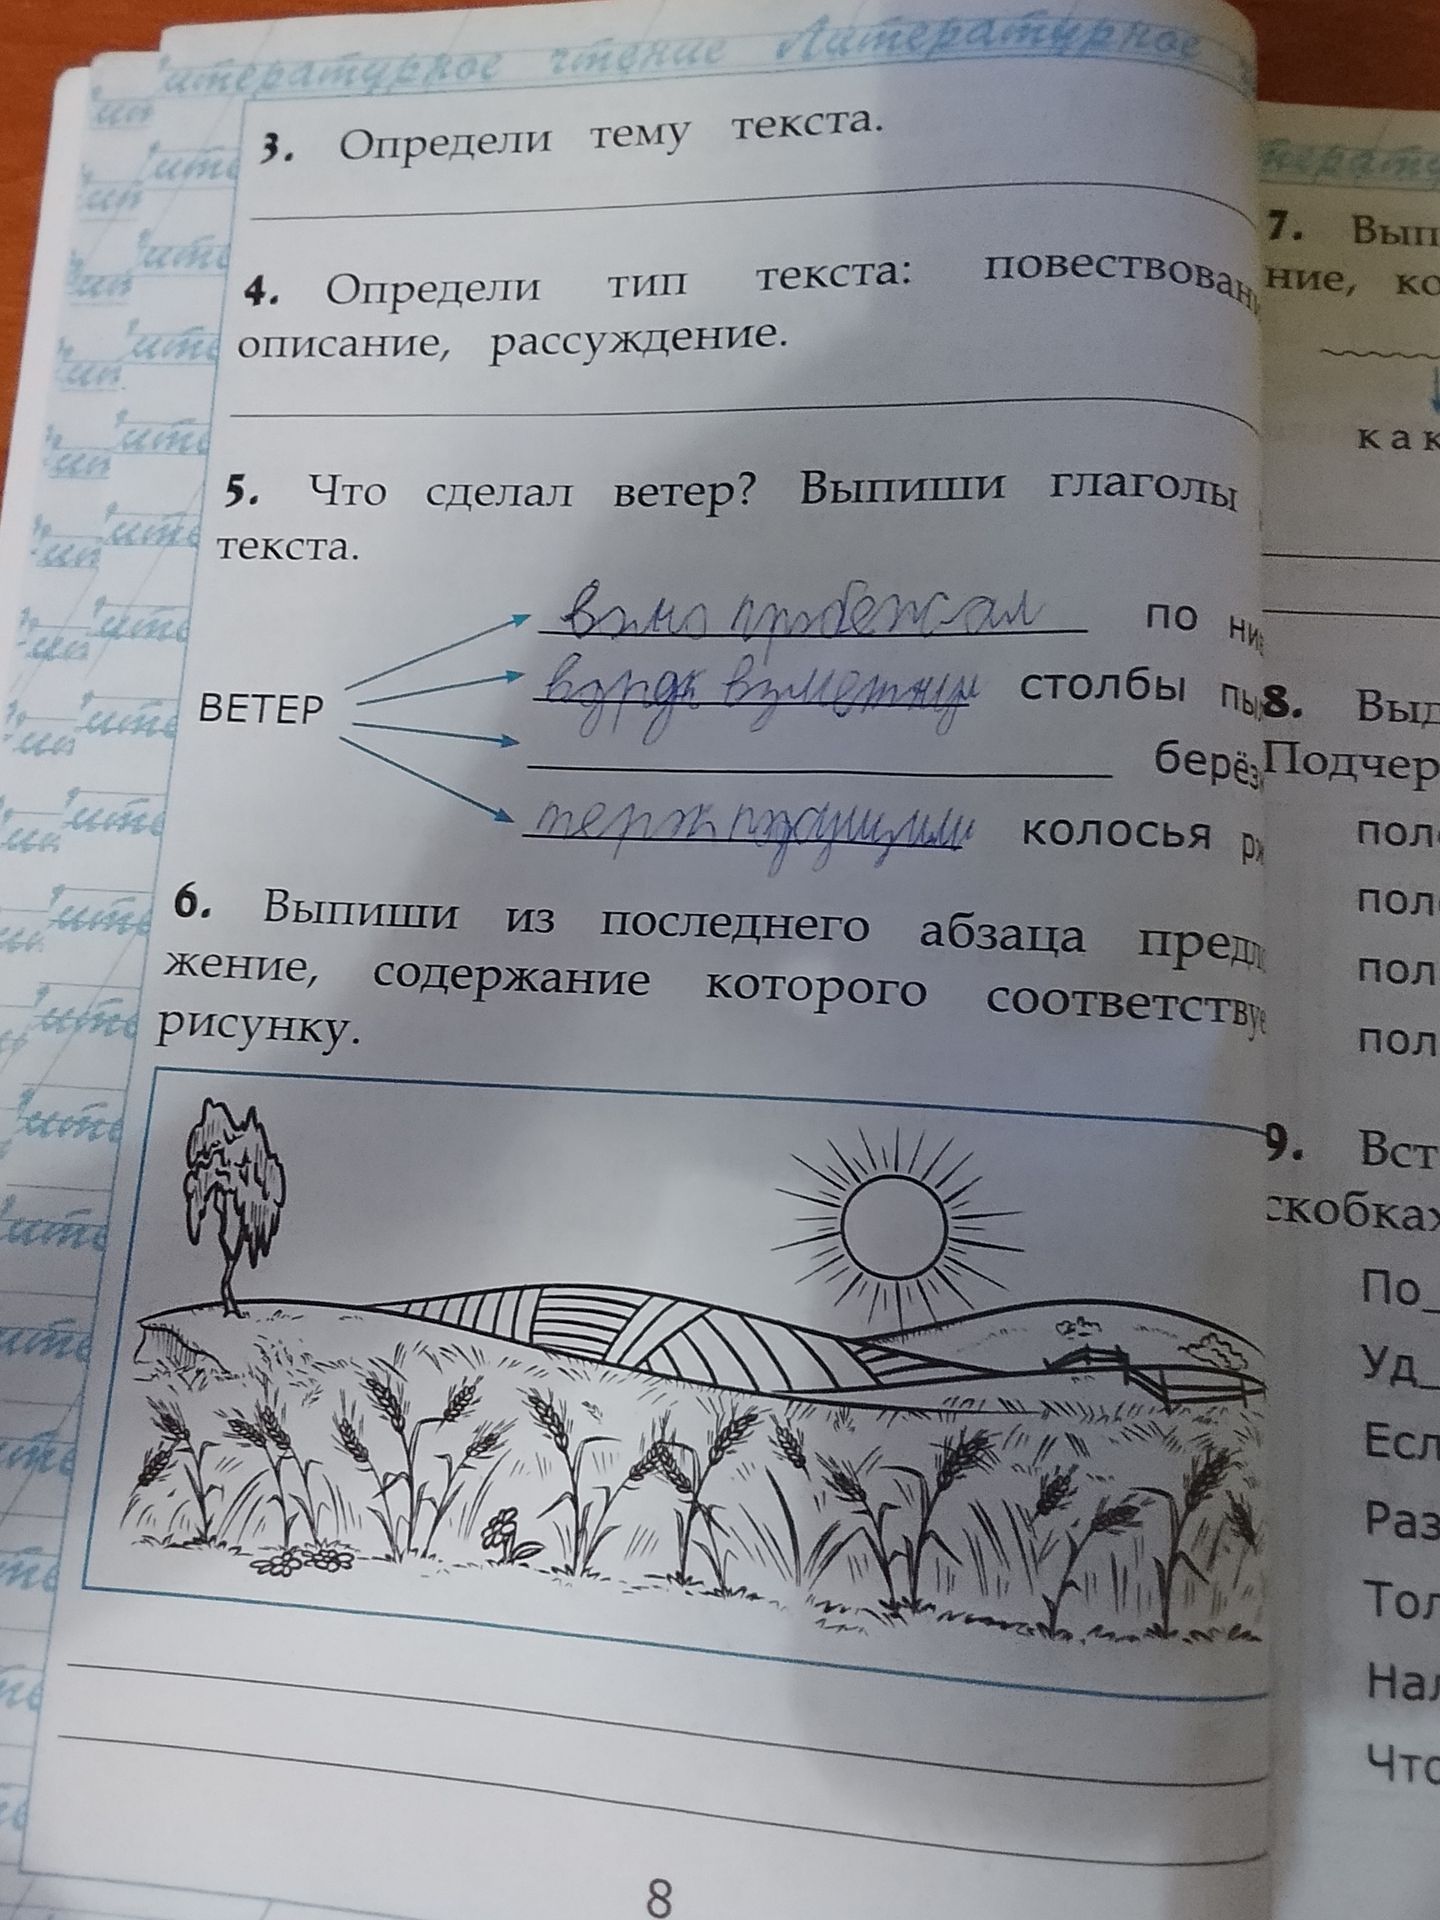 итературное чтение Литературное
3. Определи тему текста.
4. Определи тип текста: повествован
описание, рассуждение.
5. Что сделал ветер? Выпиши глаголы
текста.
ВЕТЕР
пробежал по ни
столбы пы
берёз
колосья рж
6. Выпиши из последнего абзаца предл
жение, содержание которого соответствуе
рисунку.
8
7. Вып
ние, ко
как
8. Выд
Подчер
пол
пол
пол
пол
9. Вст
скобках
По_
Уд_
Есл
Раз
Тол
Нал
Что